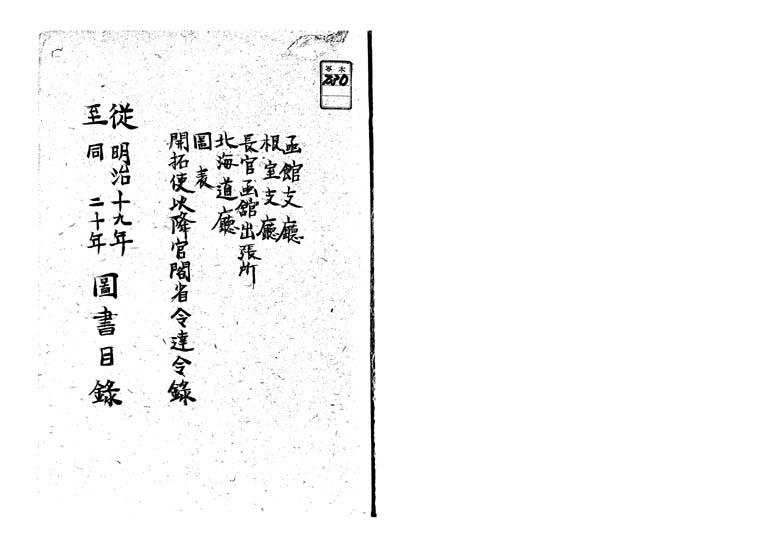 函館支廳
根室支廳
長官函館出張所
北海道廳
圖表
開拓使以降官閣省令達令錄
從明治十九年
至同二十年
圖書目錄